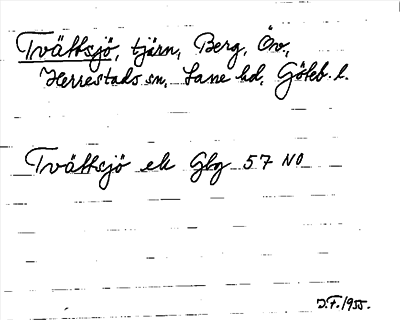 Tvättsjö, tjärn, Berg, Öv.,
Herrestads sn, Lane hd, Göteb. l.
Tvättsjö ek Gbg 57 NO
J.F. 1955.